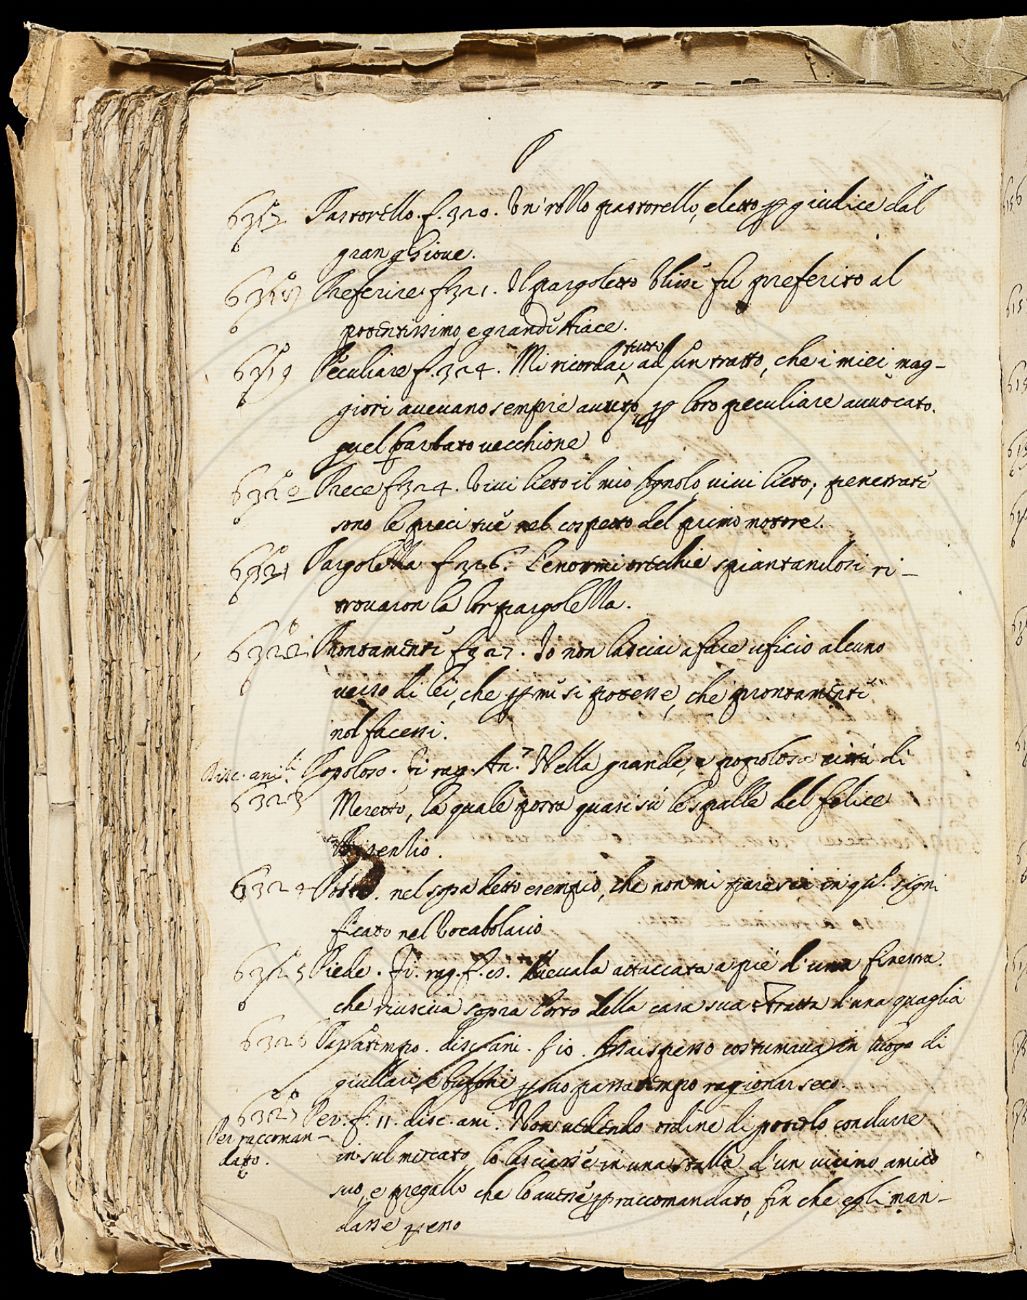 P
6317 Pastorello. f. 320. Un rozzo pastorello, eletto p giudice dal
gran Giove.
6318 Preferire f 321. Il pargoletto Ulisse fu preferito al
potentissimo, e grande Aiace.
6319 Peculiare f. 324. Mi ricordai tutto ad un tratto, che i miei mag-
giori avevano sempre avuto p loro peculiare avvocato.
quel barbato vecchione
6320 Prece f 324. Vivi lieto il mio Agnolo vivi lieto; penetrate
sono le preci tue nel cospetto del primo motore.
6321 Pargoletta f 326. L'enormi orecchie spiantandosi ri-
trovaron la lor pargoletta.
6322 Prontamente f 327. Io non lasciai a fare uficio alcuno
verso di lei, che p me si potesse, che prontamente
nol facessi.
Disc. ani. Popoloso. Fi rag. An. Nella grande, e popolosa città di
6323 Meretto, la quale posta quasi su le spalle del felice
6324 nel sopra detto esempio, che non mi pare sia in qsto signi
ficato nel Vocabolario
6325 Piede. Fi. rag. f. 10. attaccata a piè d'una finestra
che riusciva sopra l'orto della casa sua Tratta d'una quaglia
6326 Passatempo. disc. ani. f 10. Assai spesso costumava in luogo di
giullari, e buffoni p suo passatempo ragionar seco.
6327 Per. f. 11. disc. ani. Non vedendo ordine di poterlo condurre
Per raccoman-
dato.
in sul mercato, lo lasciasse in una stalla d'un vicino amico
suo, e pregallo che lo avesse p raccomandato, fin che egli man-
dasse p esso